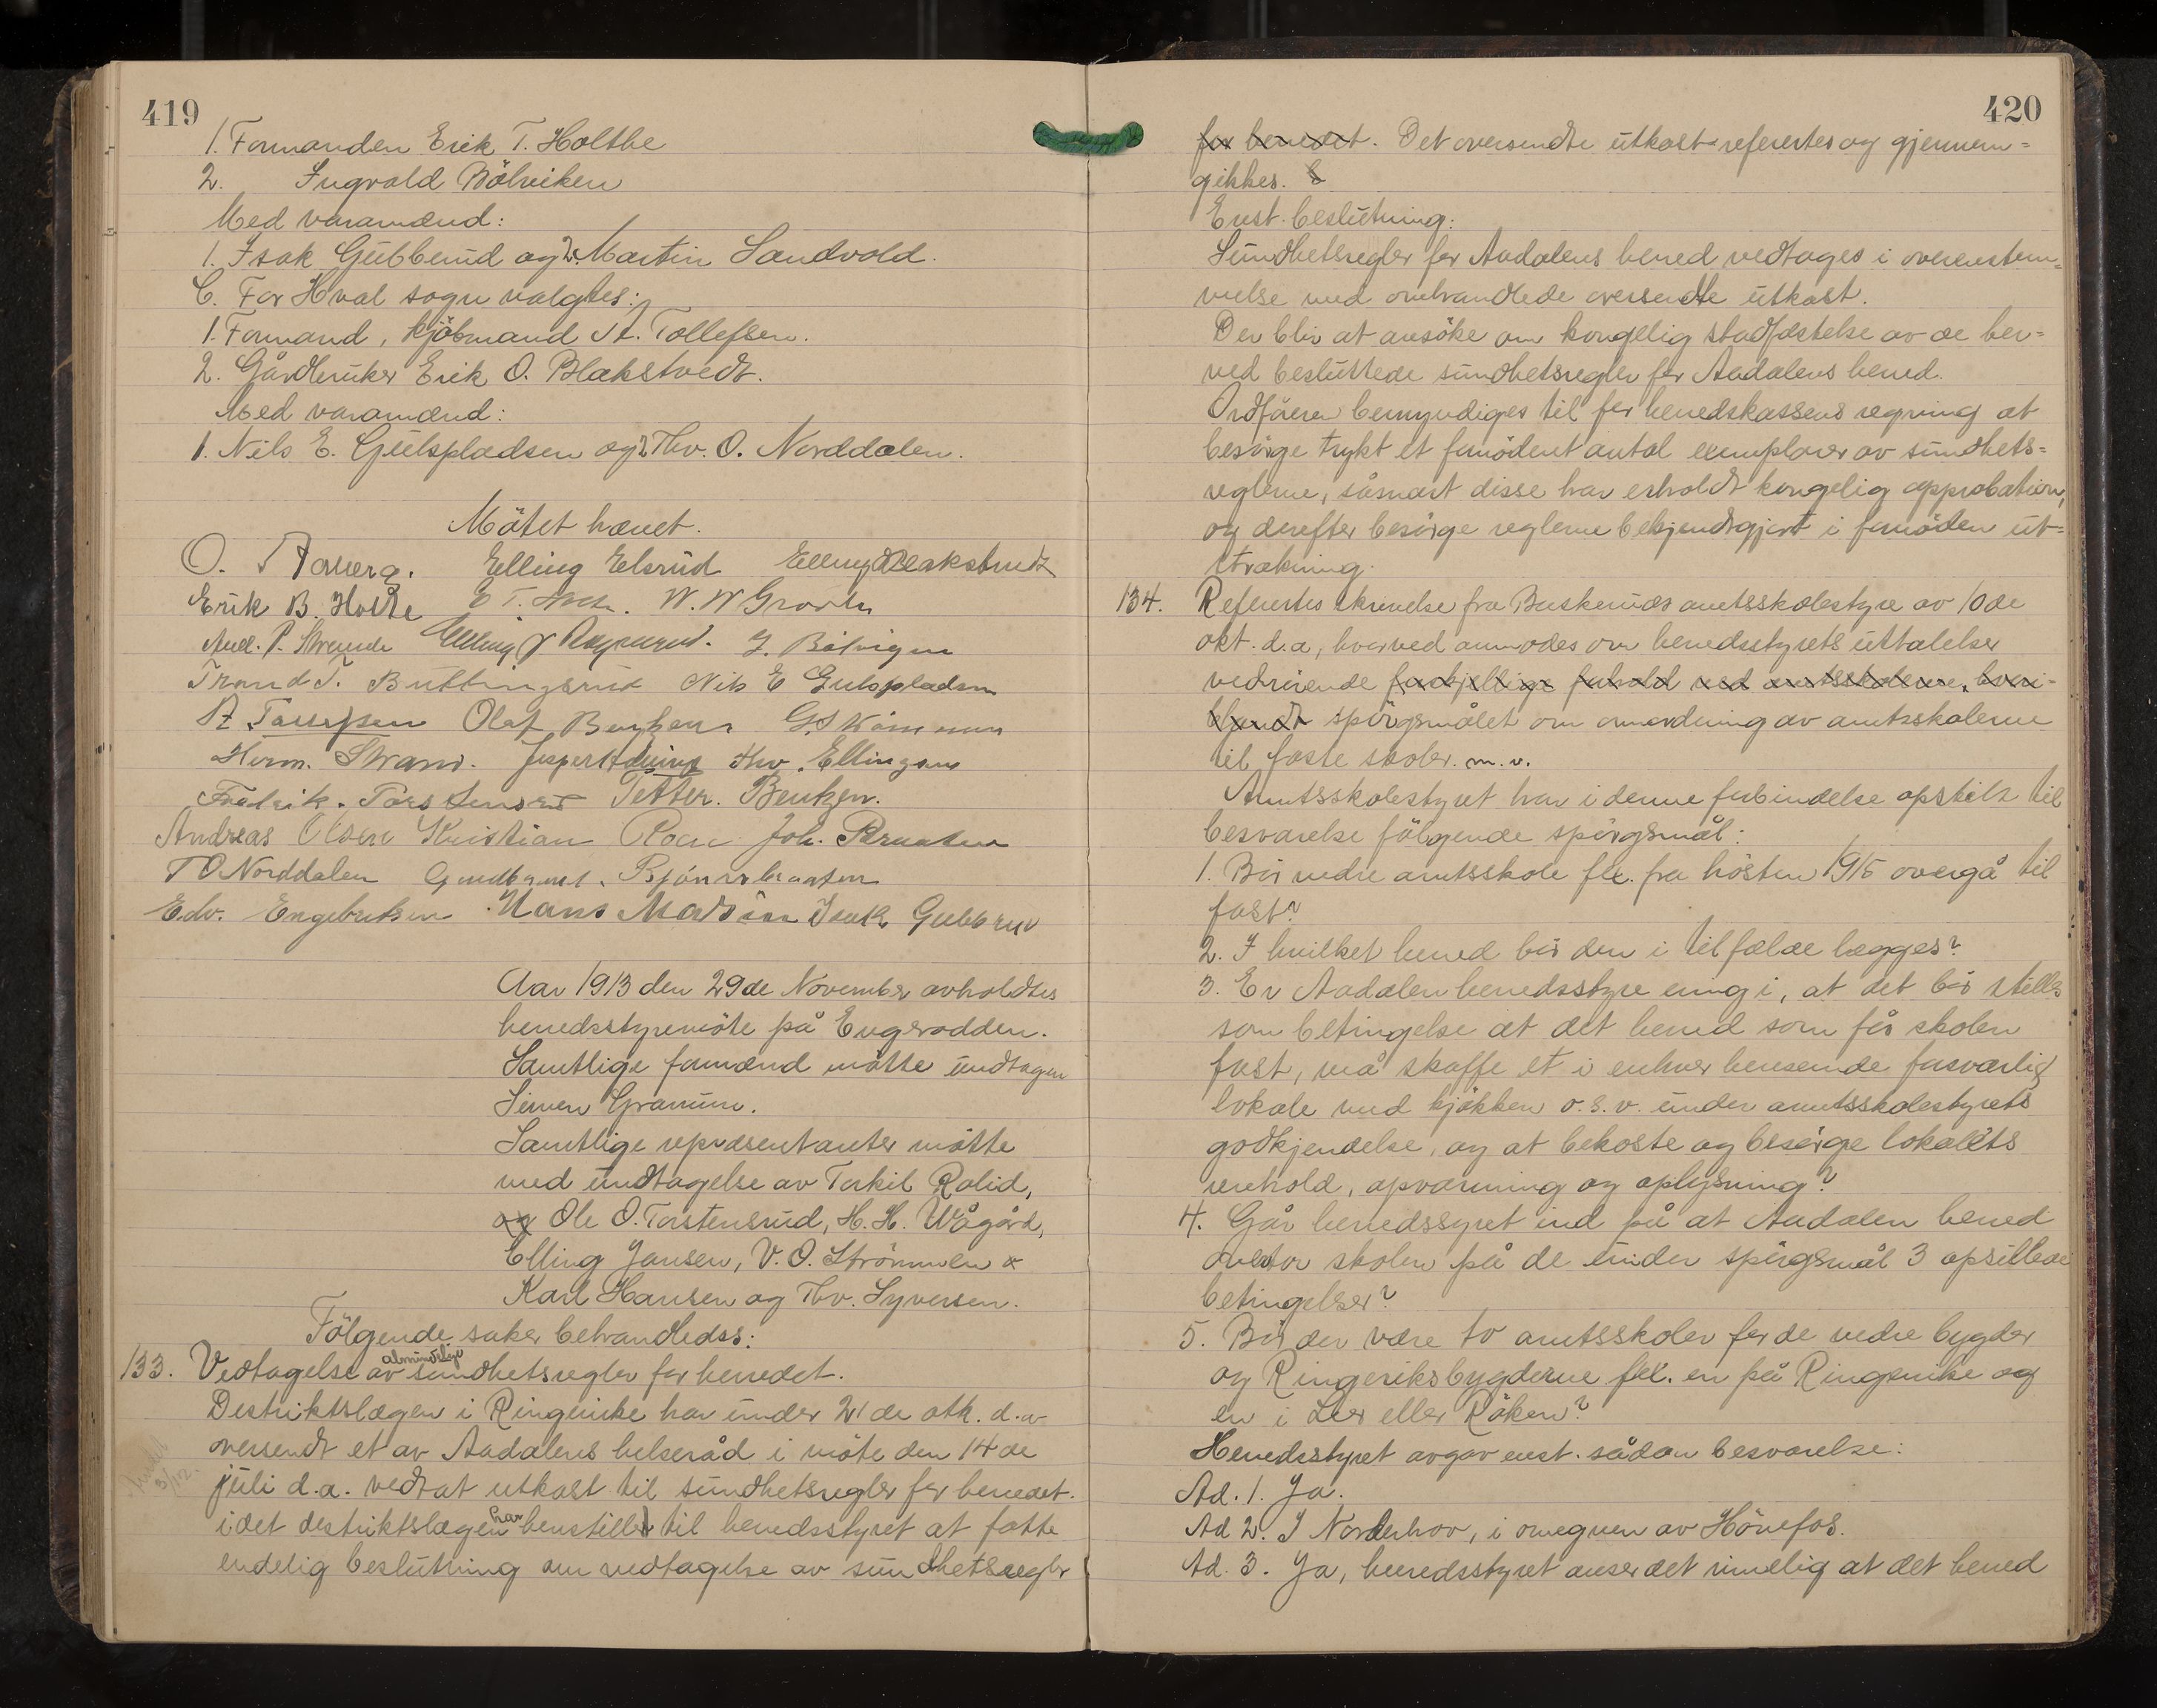 419
1. Formanden Erik T. Holthe
2. Ingvald Bölviken
Med varamænd:
1. Isak Gubberud og 2. Martin Sandvold.
C. For Hval sogn valgtes:
1. Formand, kjöbmand A. Tollefsen.
2. Gårdbruker Erik O. Blakstvedt.
Med varamænd:
1. Nils E. Gulspladsen og 2 Thv. O. Norddalen.
Mötet hævet.
O. Elling Elsrud Elling Blakstvedt
Erik B. Holte
And. P. Strande
Trond T. Buttingsrud Nils E Gulspladsen
A Tollefsen Olaf Berghem
Herm. Strand. Thv. Ellingsen
Fredrik. Torstensrud Petter. Bentzen.
Andreas Olsen Kristian Joh. Braaten
T O Norddalen Gundbrand. Bjönnsbraaten
Edv. Engebretsen Hans Madsen Isak Gubberud
Aar 1913 den 29de November avholdtes
herredsstyremöte på Engerodden.
Samtlige formænd mötte undtagen
Simen Granum.
Samtlige repræsentanter mötte
med undtagelse av Torkil Rolid,
og Ole O. Torstensrud, H. H. Wågård,
Elling Jansen, V. O. Strömmen &
Karl Hansen og Thv. Syversen.
Fölgende saker behandledes:
133. Vedtagelse av almindelige sundhetsregler for herredet.
Destriktslægen i Ringerike har under 21de otk. d.a.
oversendt et av Aadalens helseråd i möte den 14de
juli d.a. vedtat utkast til sundhetsregler for herredet.
idet destriktslægen har henstillet til herredsstyret at fatte
endelig beslutning om vedtagelse av sundhetsregler
3/12.
420
for herredet. Det oversendte utkast refereertes og gjennem=
gikkes.
Enst. beslutning:
Sundhetsregler for Aadalens herred vedtages i overenstem=
melse med omhandlede oversendte utkast.
Der blir at ansöke om kongelig stadfæstelse av de her=
ved besluttede sundhetsregler for Aadalens herred.
Ordföreren bemyndiges til for herredskassens regning at
besörge trykt et fornödent antal exemplarer av sundhets=
reglerne, såsnart disse har erholdt kongelig approbation,
og derefter besörge reglerne bekjendtgjort i fornöden ut=
strækning.
134. Refereertes skrivelse fra Buskeruds amtsskolestyre av 10de
okt. d.a, hvorved anmodes om herredsstyrets uttalelser
vedrörende forskjellige forhold ved amtsskolerne, hvori-
blandt spörgsmålet om omordning av amtsskolerne
til faste skoler. m.v.
Amtsskolestyret har i denne forbindelse opstilt til
besvarelse fölgende spörgsmål:
1. Bör nedre amtsskole f.ex. fra hösten 1915 overgå til
fast?
2. I hvilket herred bör den i tilfælde lægges?
3. Er Aadalen herredsstyre enig i, at det bör stilles
som betingelse at det herred som får skolen
fast, må skaffe et i enhver henseende forsvarlig
lokale med kjökken o.s.v. under amtsskolestyrets
godkjendelse, og at bekoste og besörge lokalets
renhold, opvarming og oplysning?
4. Går herredssyret ind på at Aadalen herred
skolen på de under spörgsmål 3 opstillede
betingelser?
5. Bör der være to amtsskoler for de nedre bygder
og Ringeriksbygderne f.ex. en på Ringerike og
en i Lier eller Röken?
Herredsstyret avgav enst. sådan besvarelse:
Ad. 1. Ja.
Ad 2. I Norderhov, i omegnen av Hönefos.
Ad. 3. Ja, herredsstyret anser det rimelig at det herred